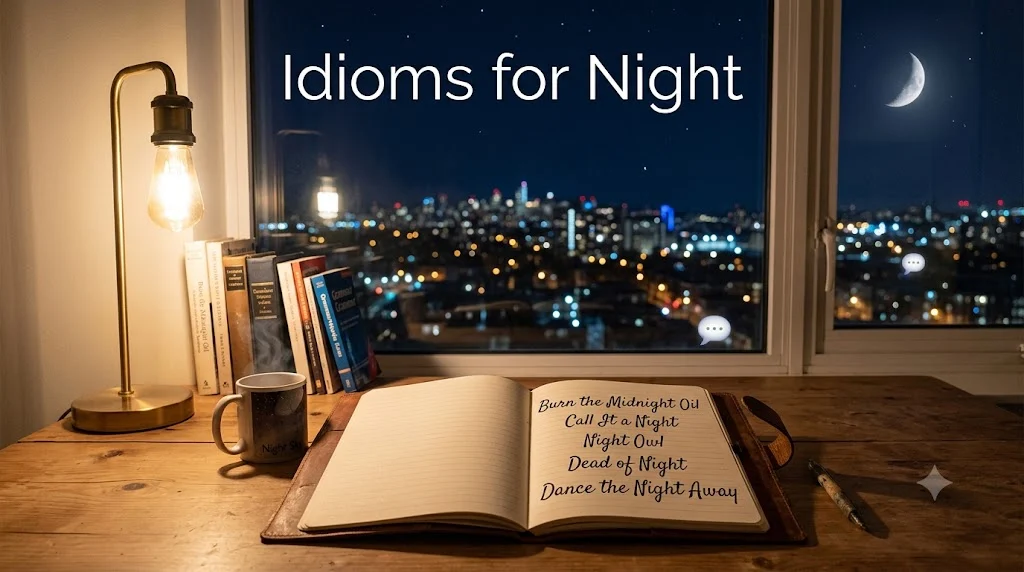 Idioms for Night
Burn the Midnight Oil
Call It a Night
Night Owl
Dead of Night
Dance the Night Away